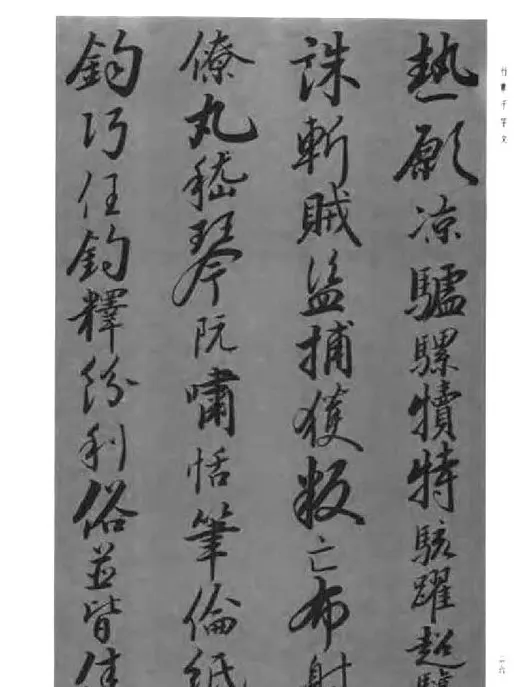 行書千字文
熱願凉驢騾犢特駭躍超驤
誅斬賊盜捕獲叛亡布射
僚丸嵇琴阮嘯恬筆倫紙
鈞巧任釣釋紛利俗並皆佳
二六